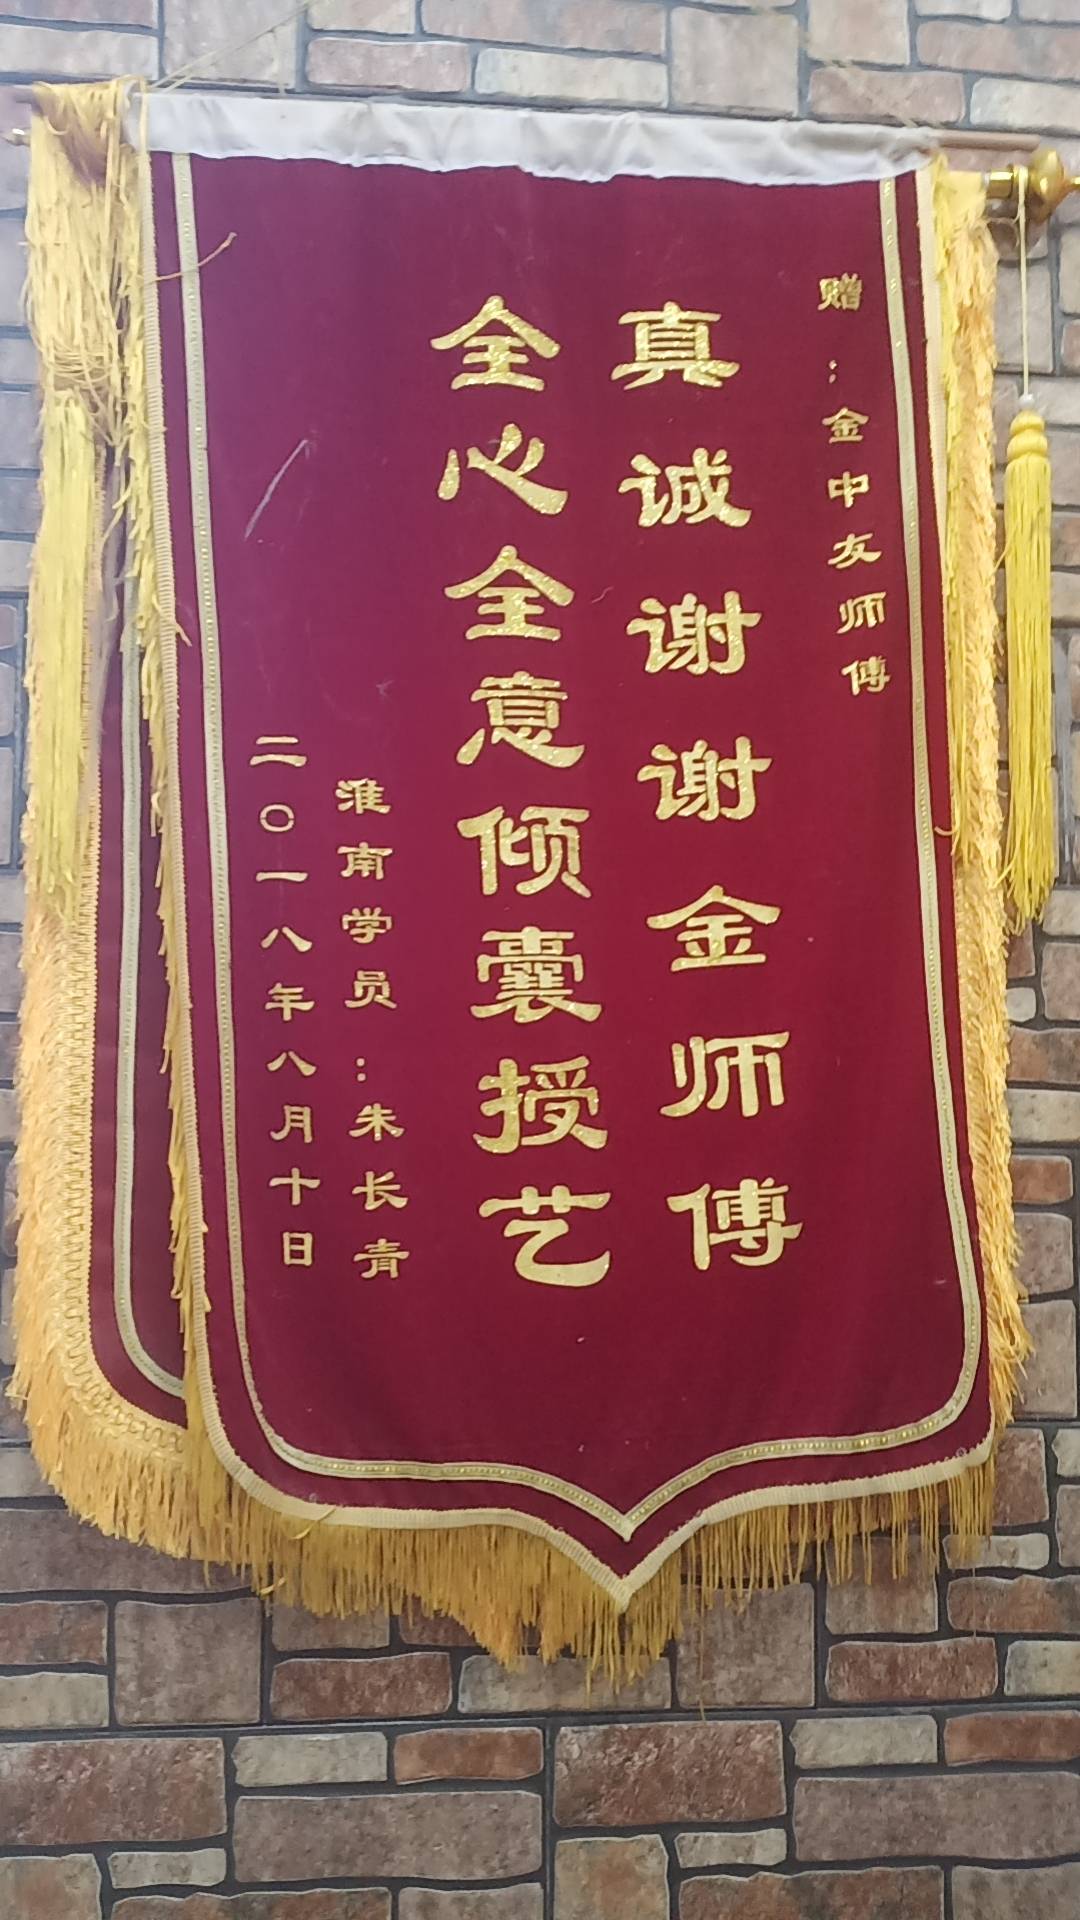 赠：金中友师傅
真诚谢谢金师傅
全心全意倾囊授艺
淮南学员：朱长青
二〇一八年八月十日